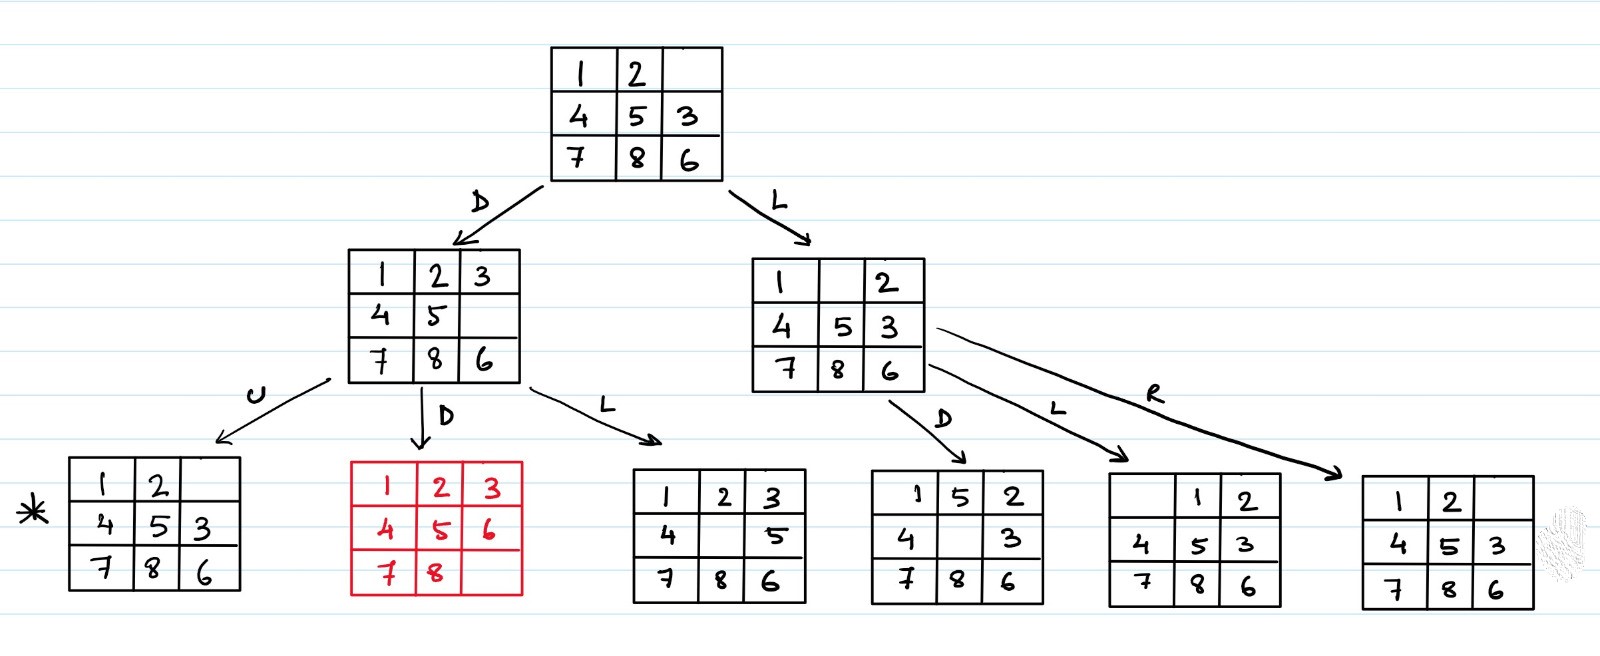 1 2
4 5 3
7 8 6
D L
1 2 3
4 5
7 8 6
1 2
4 5 3
7 8 6
U D L D L R
*
1 2
4 5 3
7 8 6
1 2 3
4 5 6
7 8
1 2 3
4 5
7 8 6
1 5 2
4 3
7 8 6
1 2
4 5 3
7 8 6
1 2
4 5 3
7 8 6